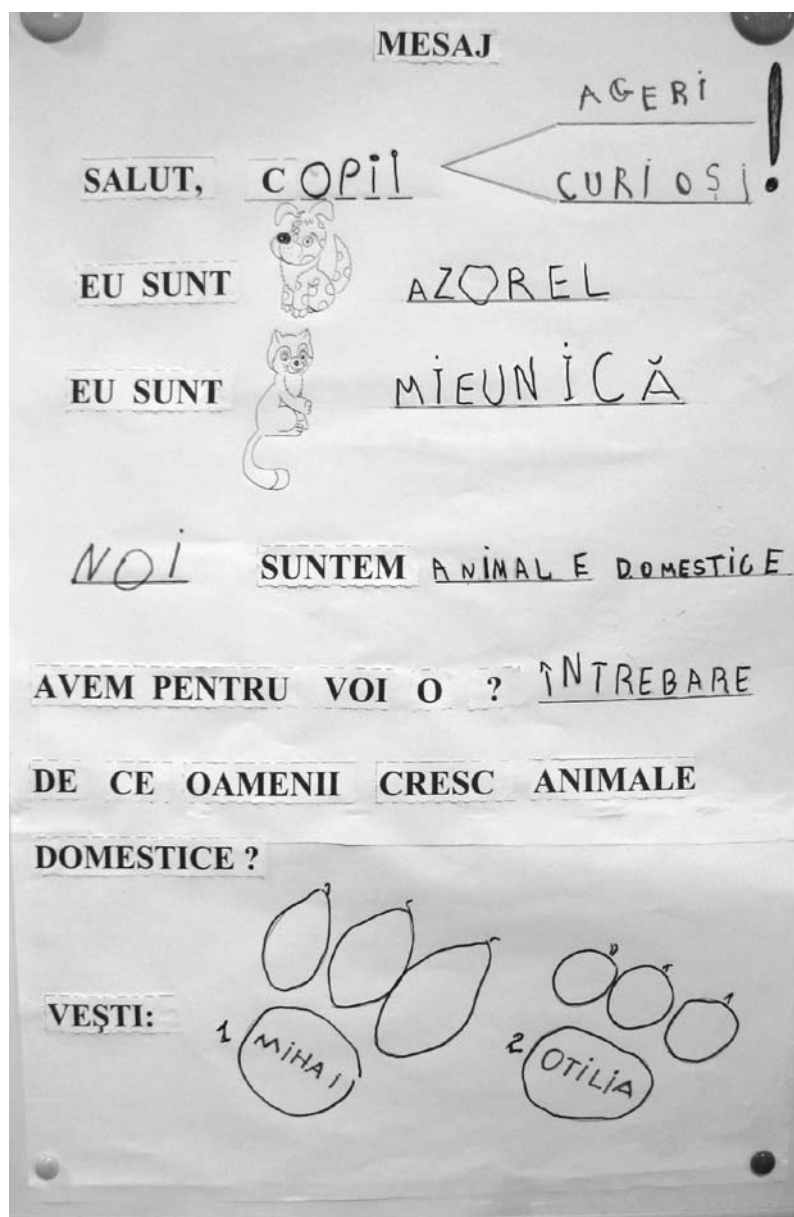 MESAJ
AGERI
SALUT, COPII CURIOȘI!
EU SUNT AZOREL
EU SUNT MIEUNICĂ
NOI SUNTEM ANIMALE DOMESTICE
AVEM PENTRU VOI O ? ÎNTREBARE
DE CE OAMENII CRESC ANIMALE
DOMESTICE ?
VEŞTI: 1 MIHAI 2 OTILIA